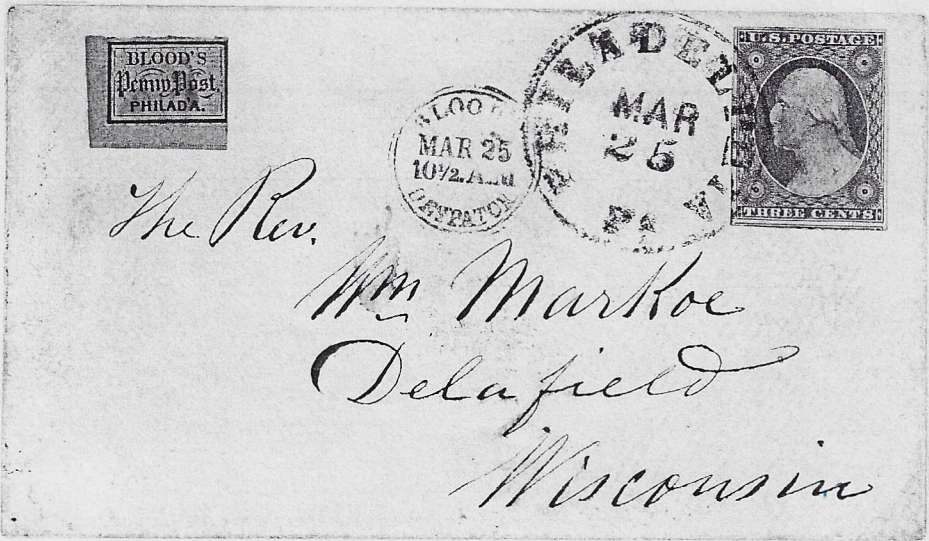 BLOOD'S
Penny Post,
PHILAD'A.
BLOOD'S
MAR 25
10½.A.M
DESPATCH
PHILADELPHIA
MAR
25
PA
U.S. POSTAGE
THREE CENTS
The Rev.
Wm Markoe
Delafield
Wisconsin